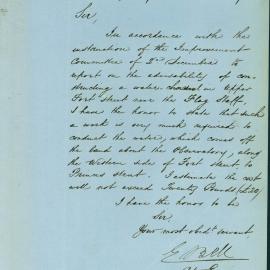 Sir,
In accordance with the
instruction of the Improvement
Committee of 2nd December to
report on the advisability of con-
structing a water channel in Upper
Fort Street near the Flag Staff,
I have the honor to state that such
a work is very much required to
conduct the water, which comes off
the land about the Observatory, along
the Western side of Fort Street to
Princes Street. I estimate the cost
will not exceed Twenty Pounds (£20)
I have the honor to be
Sir
Your most obdt servant,
E Bell